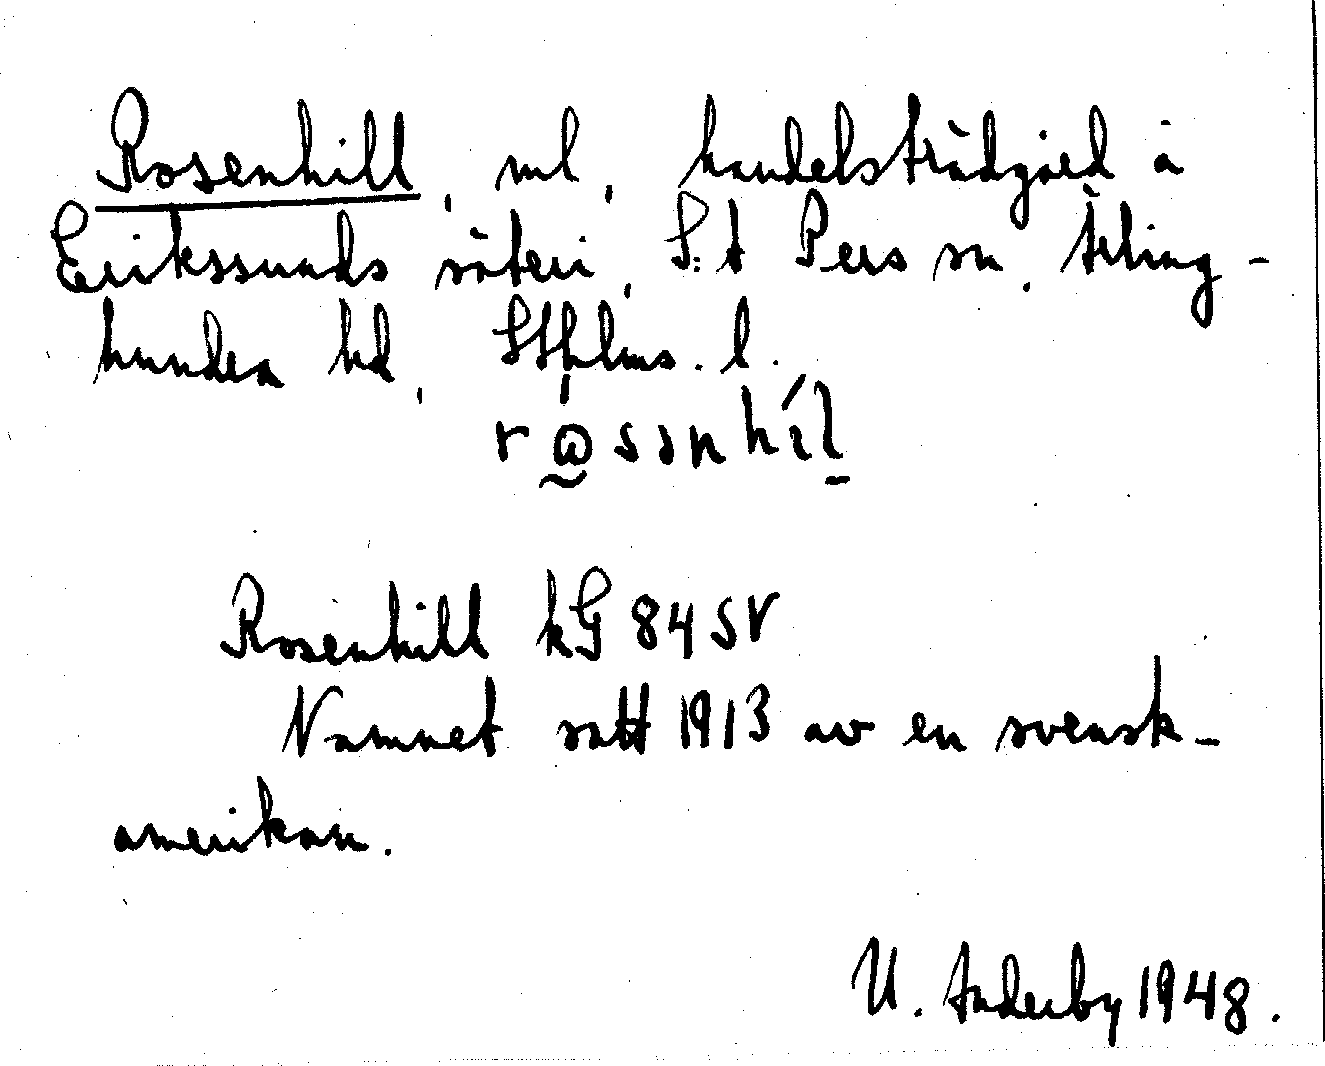 Rosenhill, ml, handelsträdgård å
Erikssunds säteri, S:t Pers sn, Ärling-
hundra hd, Sthlms. l.
Rosenhill kG 84 SV
Namnet satt 1913 av en svensk-
amerikan.
U. Anderby 1948.